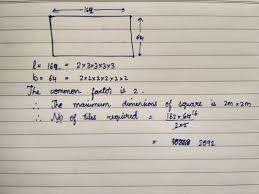 162
64
l = 162 = 2×3×3×3×3
b = 64 = 2×2×2×2×2×2
The common factor is 2.
∴ The maximum dimensions of square is 2m×2m
∴ No of tiles required = 162×64¹⁶ / 2×2
= 2592